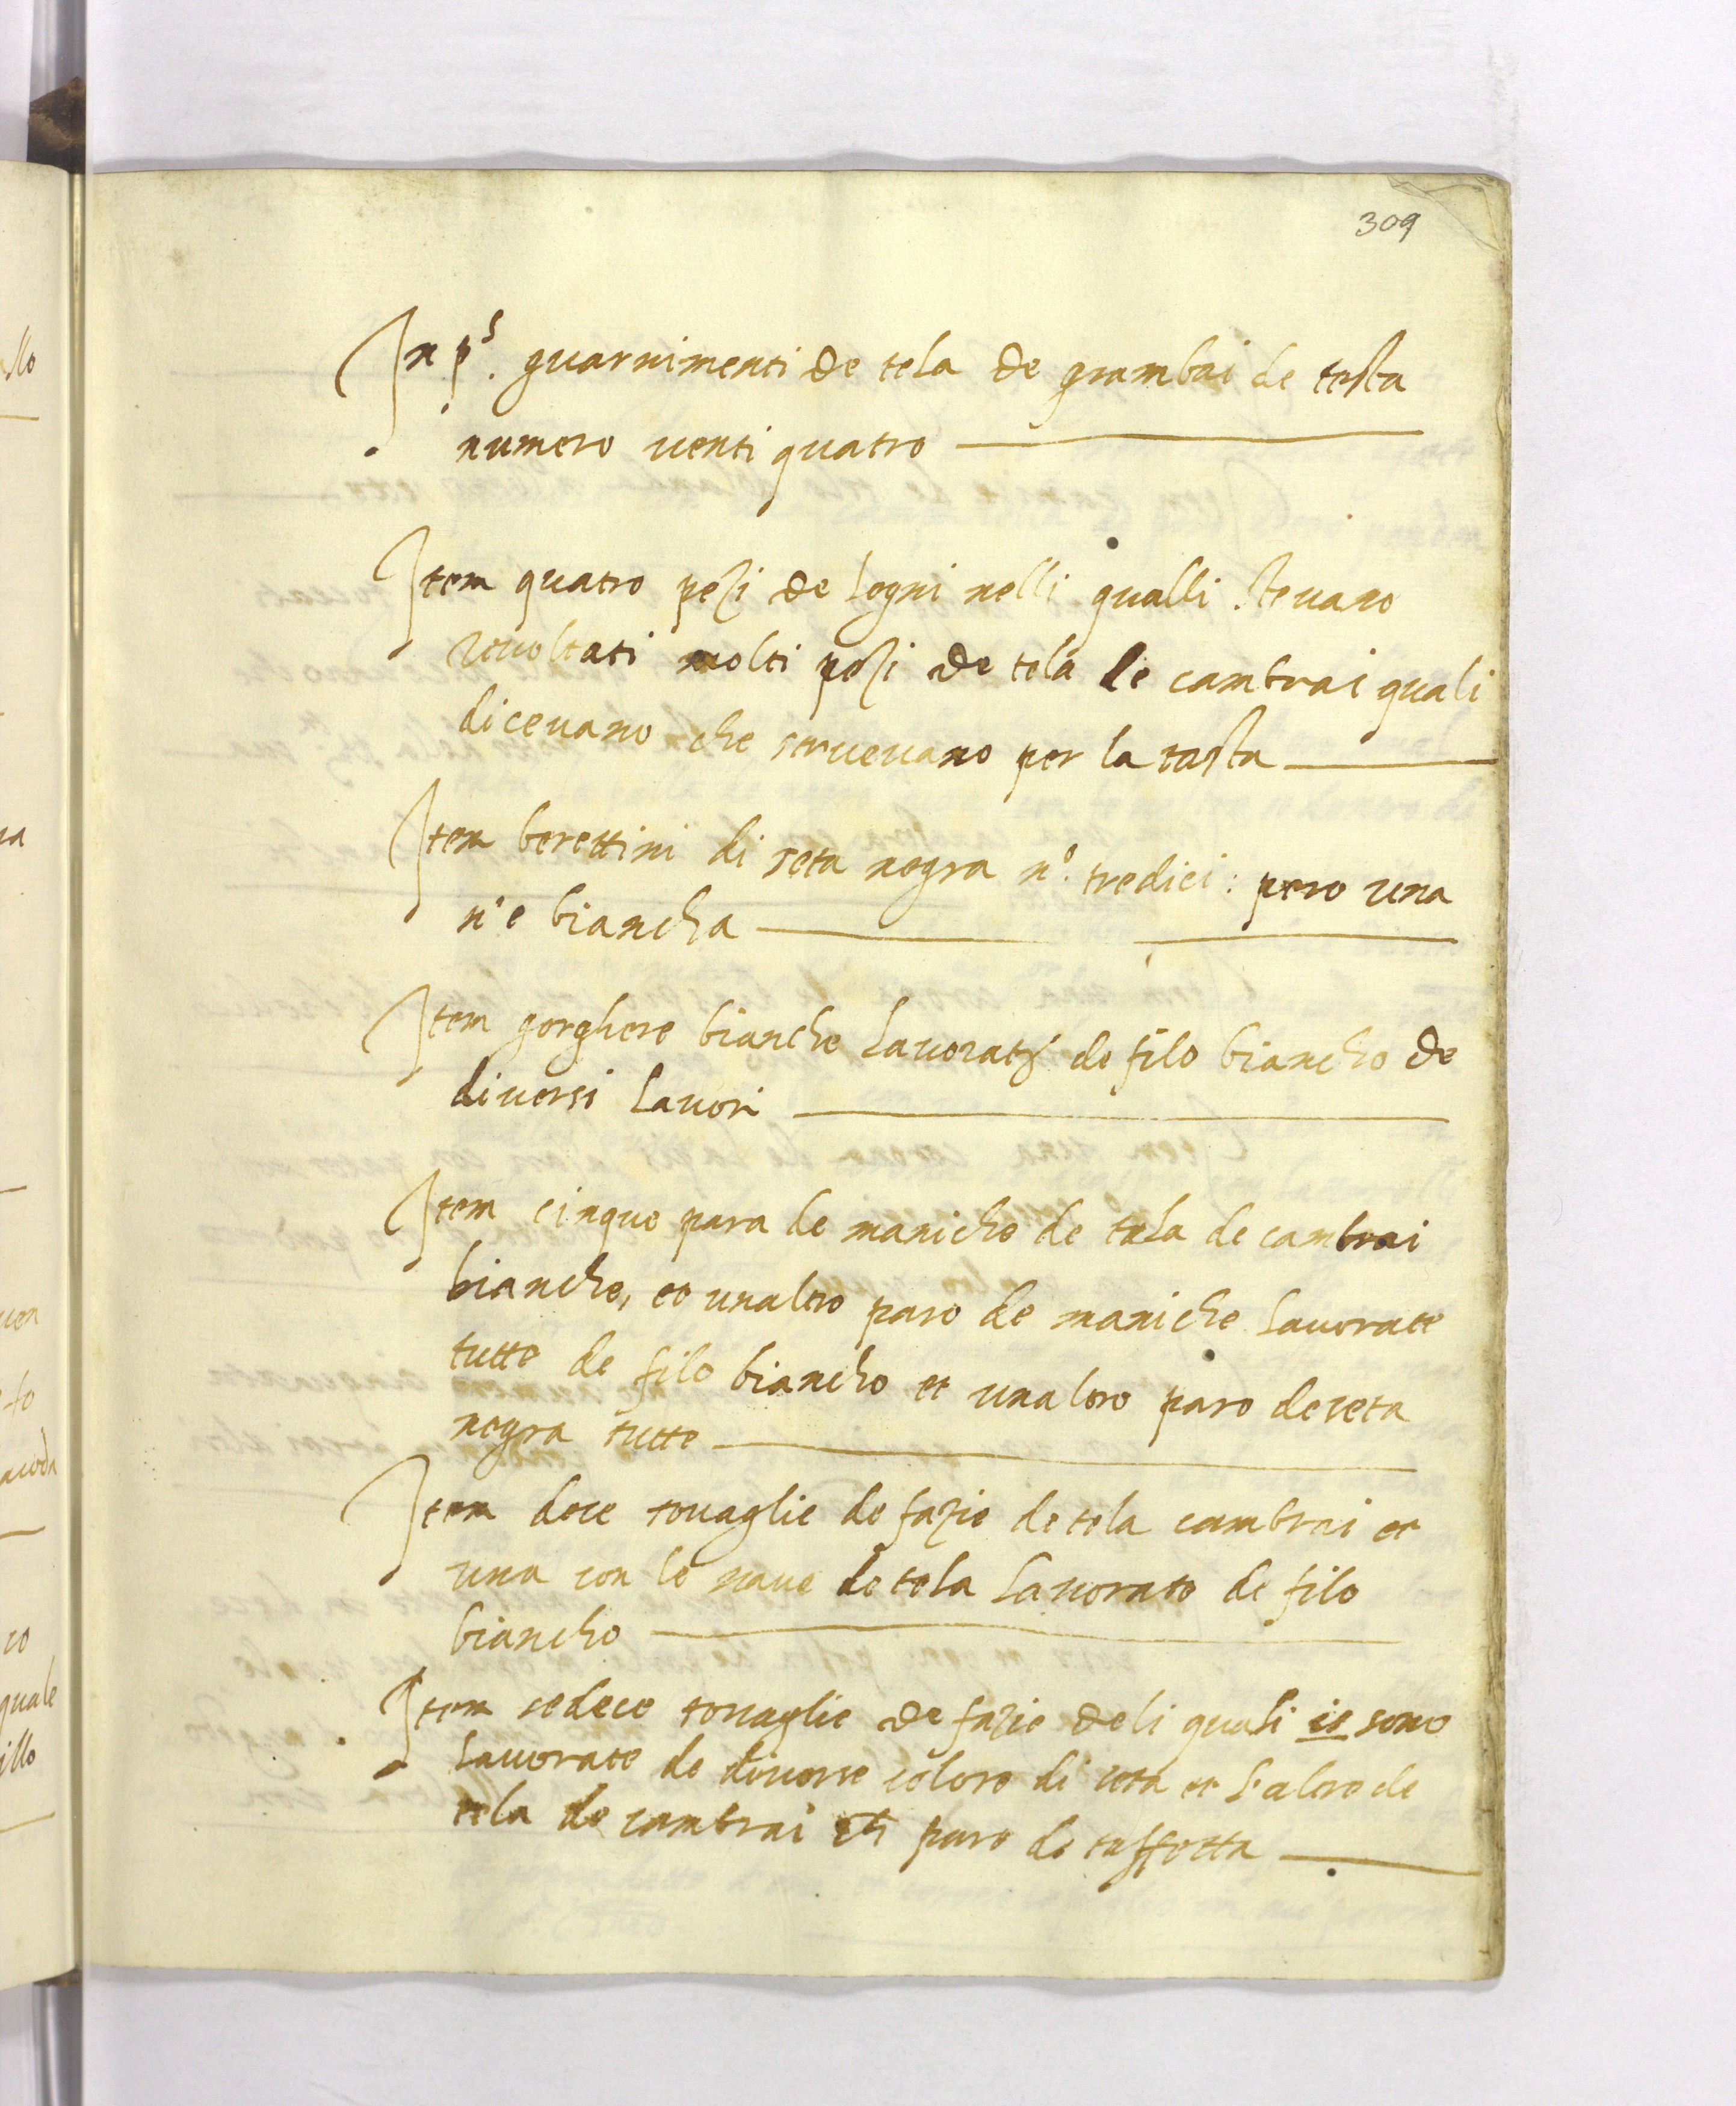 309
In p.s guarnimenti de tela de grambai de testa
numero venti quatro
Item quatro pezi de legni nelli qualli stevano
revoltati molti pezi de tela de cambrai quali
dicevano che servevano per la tasta
Item berettini di seta negra n.o tredici: pero una
n'e biancha
Item gorghere bianche lavorate de filo biancho de
diversi lavori
Item cinque para de maniche de tela de cambrai
bianche, et unaltro paro de maniche lavorate
tutte de filo biancho et unaltro paro de seta
negra tutte
Item doce tovaglie de fazie de tela cambrai et
una con le nave de tela lavorate de filo
biancho
Item sedece tovaglie de fazie deli quali sono
lavorate de diverse colore di seta et l'altre de
tela de cambrai paro de taffetta
allo
quale
illo